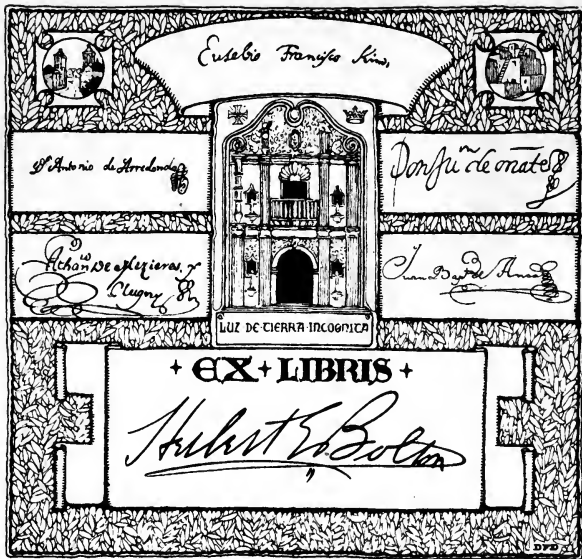 Eusebio Francisco Kino,
Dn Antonio de Arredondo
Don Jun de oñate
Athan De Mezieres, y
Clugny
Juan Baptta de Anza
LUZ DE TIERRA INCOGNITA
EX LIBRIS
Herbert E. Bolton
DFD